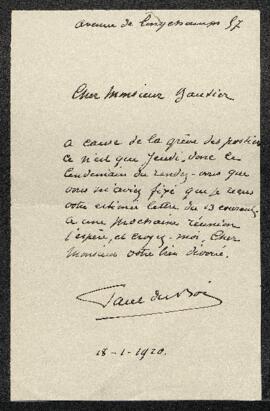 avenue de Longchamps 57
Cher Monsieur Gautier
A cause de la grève des postiers
ce n'est que Jeudi, donc le
lendemain du rendez-vous que
vous m'aviez fixé que je reçus
votre estimée lettre du 13 courant,
a une prochaine réunion
j'espère, et croyez-moi, Cher
Monsieur votre bien dévoué.
Paul du Bois
18-1-1920.